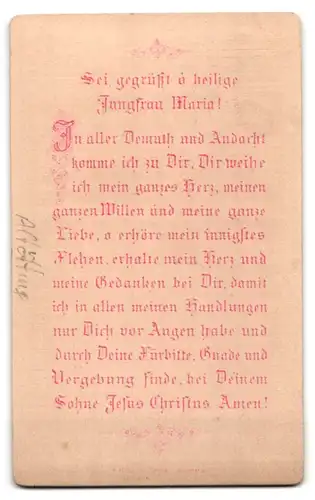 Sei gegrüßt ô heilige
Jungfrau Maria!
In aller Demuth und Andacht
komme ich zu Dir, Dir weihe
ich mein ganzes Herz, meinen
ganzen Willen und meine ganze
Liebe, o erhöre mein innigstes
Flehen, erhalte mein Herz und
meine Gedanken bei Dir, damit
ich in allen meinen Handlungen
nur Dich vor Augen habe und
durch Deine Fürbitte, Gnade und
Vergebung finde, bei Deinem
Sohne Jesus Christus Amen!